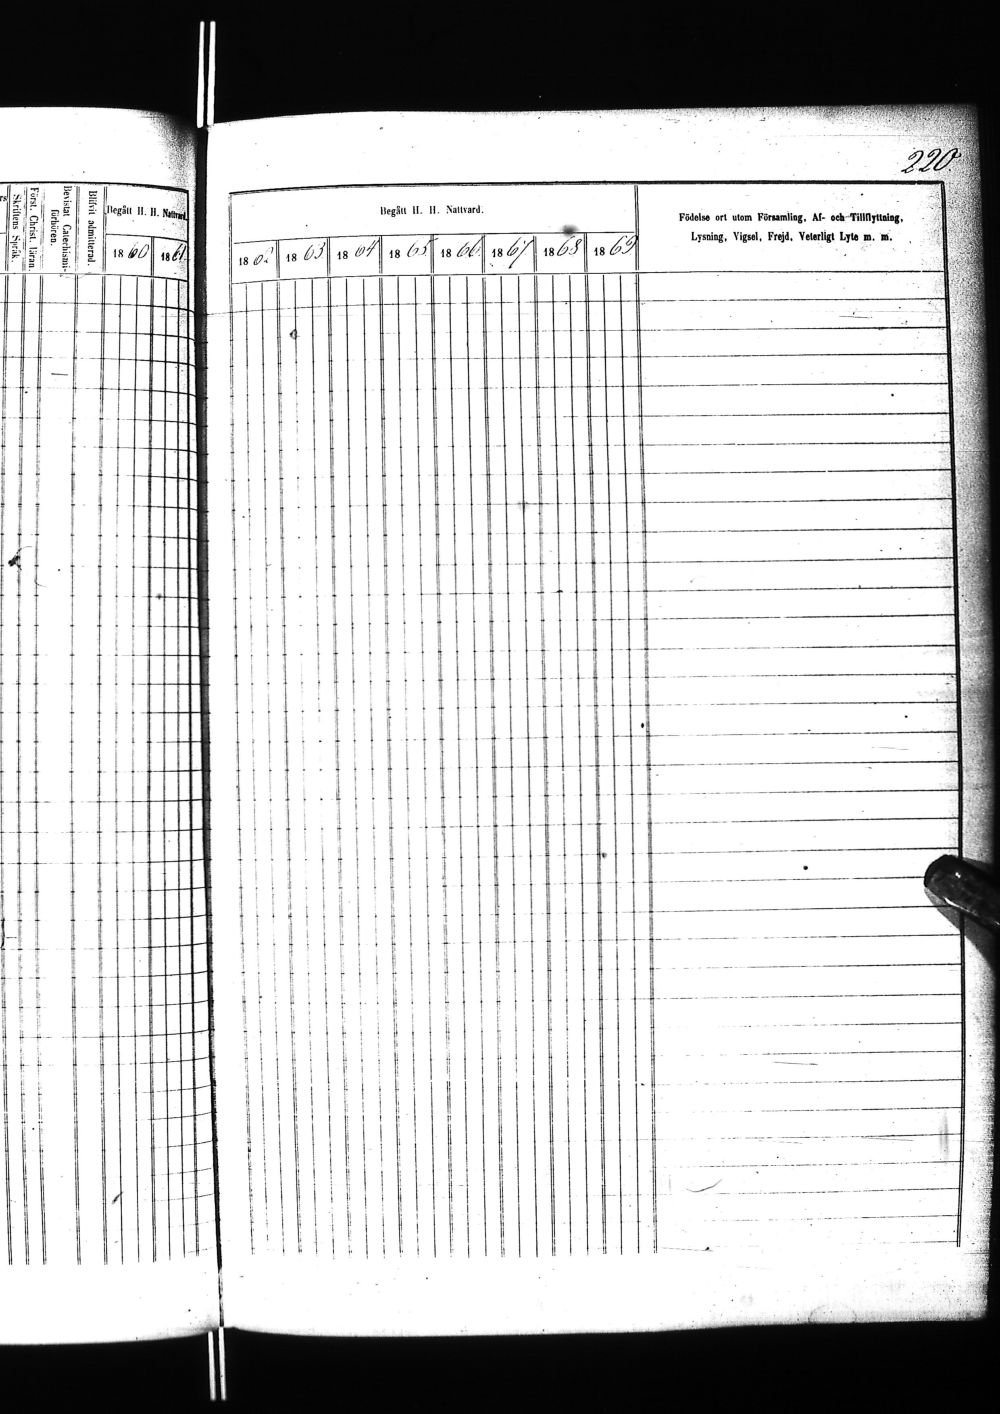 220.
Skriftens Språk.
Först. Christ. läran.
Bevistat Catechismi-
förhören.
Blifvit admitterad.
Begått H. H. Nattvard.
1860 1861
Begått H. H. Nattvard.
1862 1863 1864 1865 1866 1867 1868 1869
Födelse ort utom Församling, Af- och Tillflyttning,
Lysning, Vigsel, Frejd, Veterligt Lyte m. m.